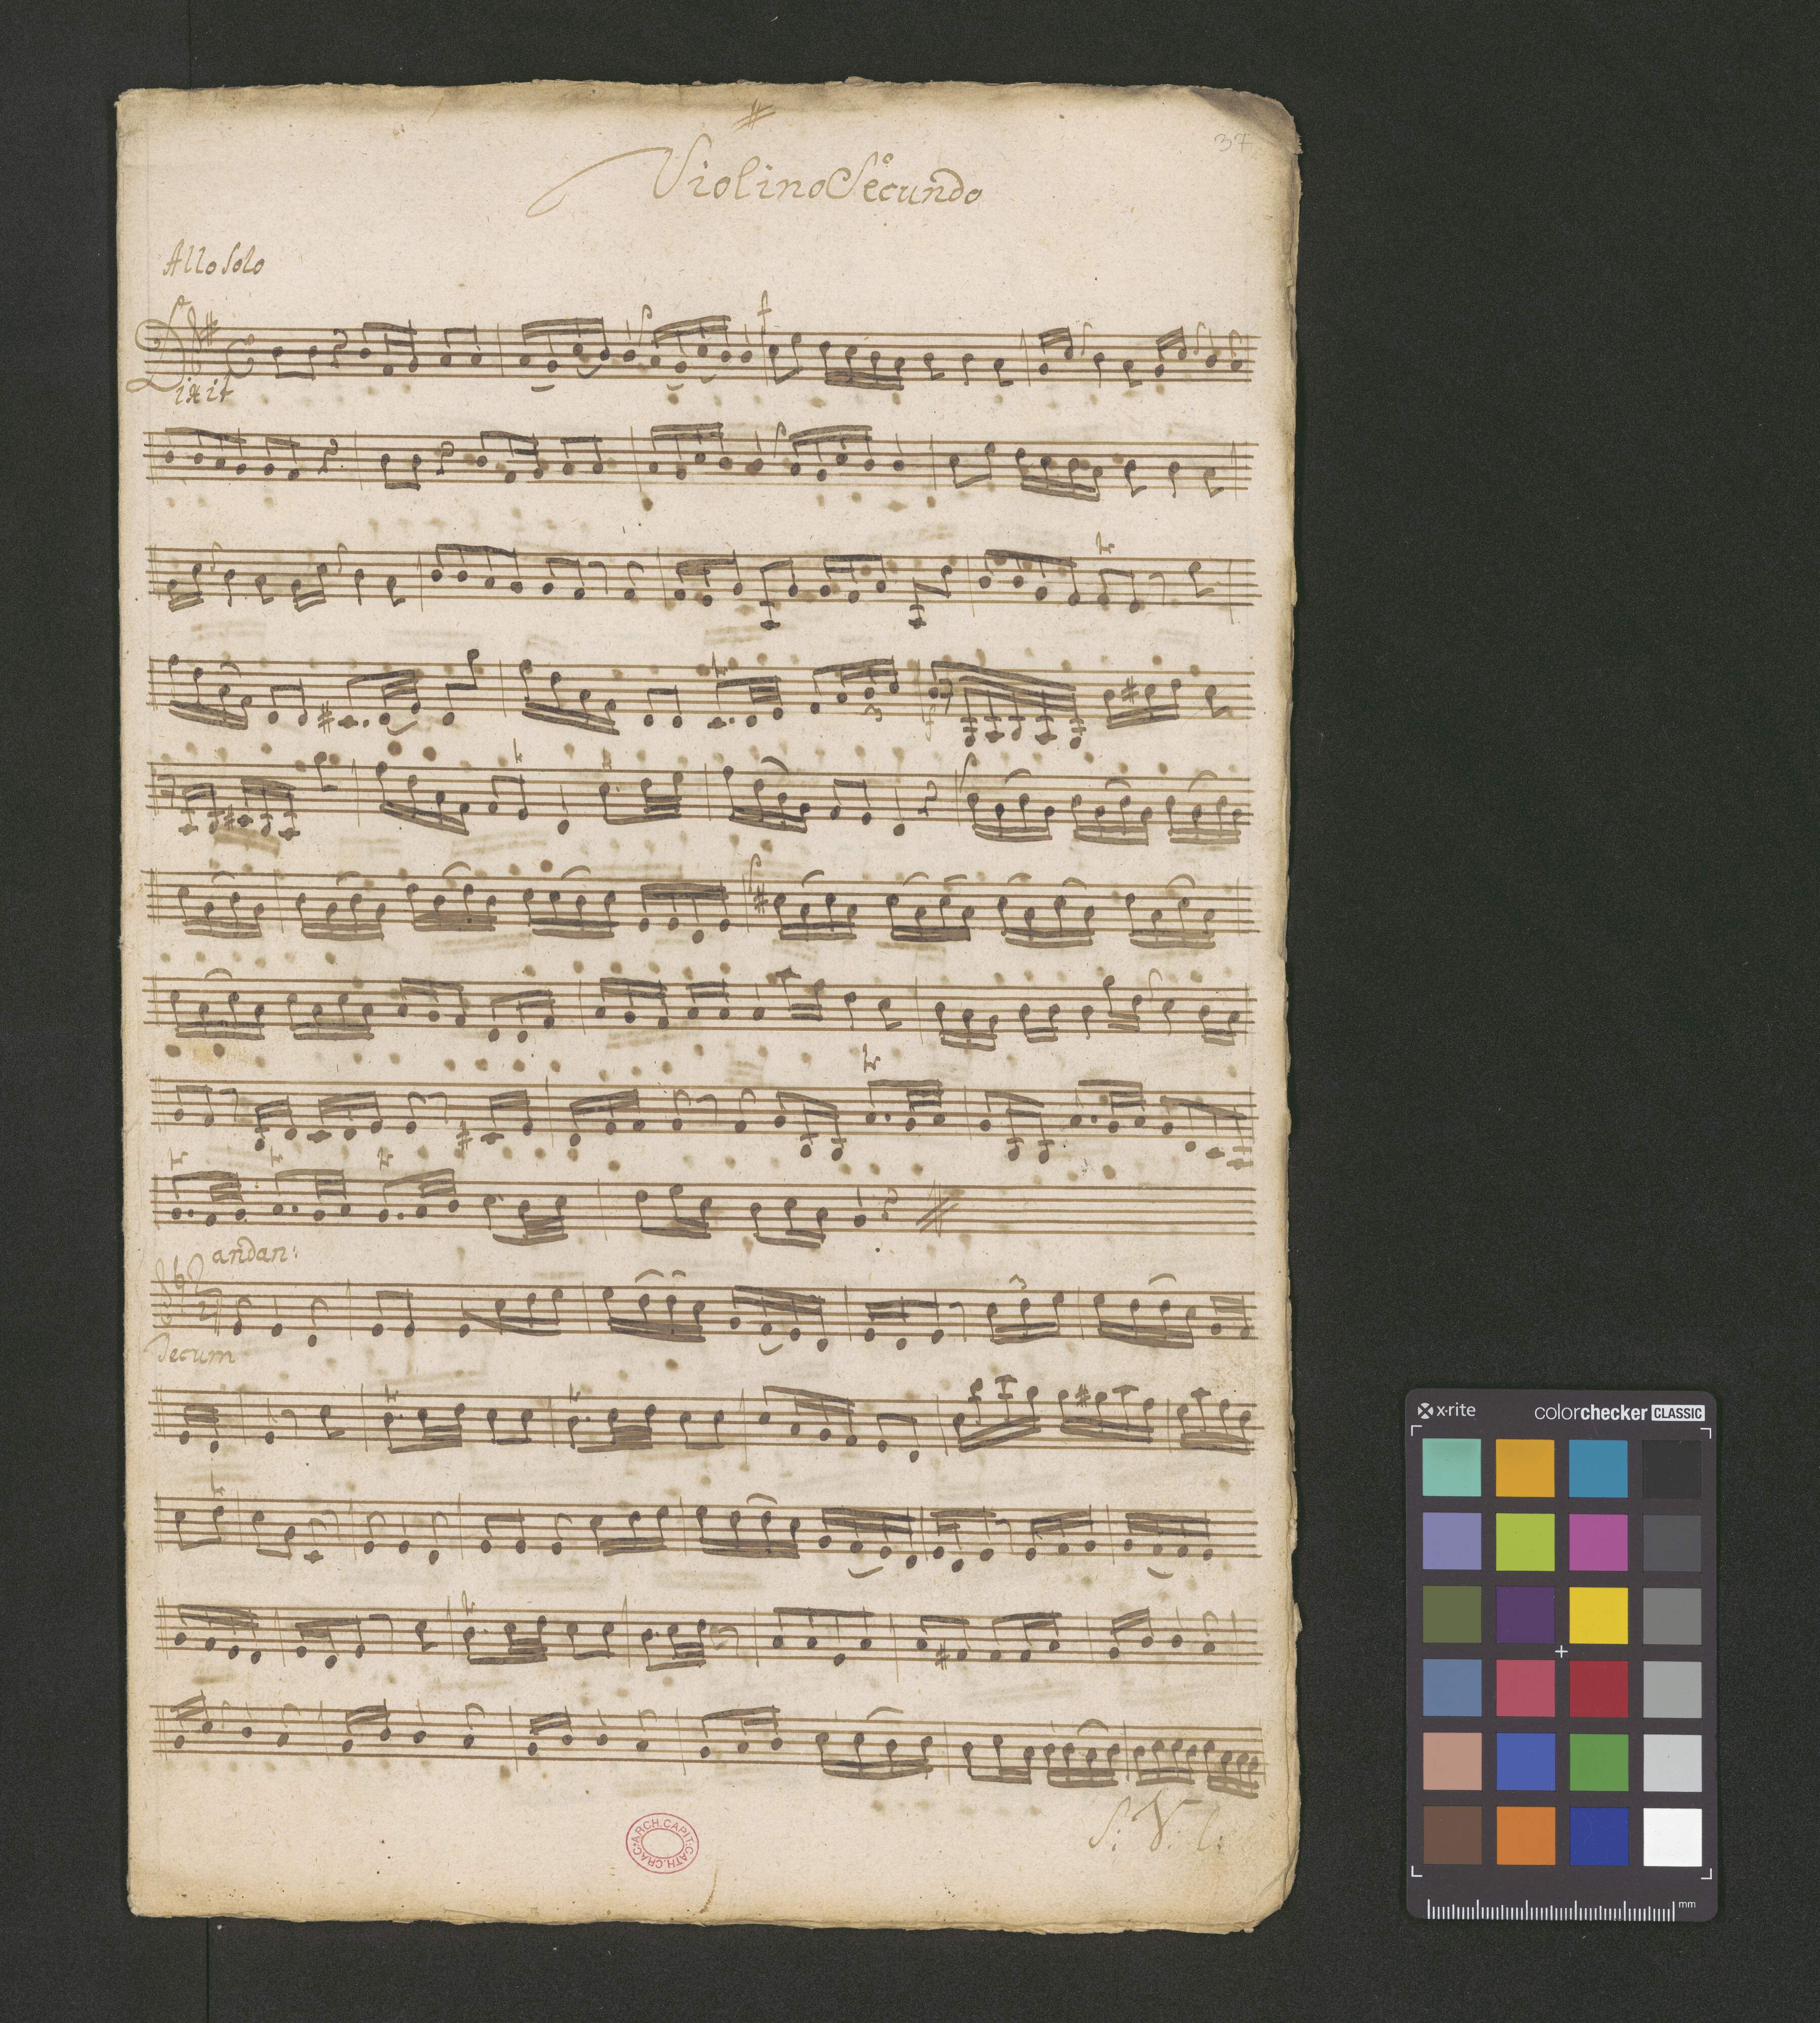 37
Violino Secundo
Allo Solo
Dixit
andan:
Tecum
S: V: l:
ARCH. CAPIT. CATH. CRAC.
x-rite colorchecker CLASSIC
mm